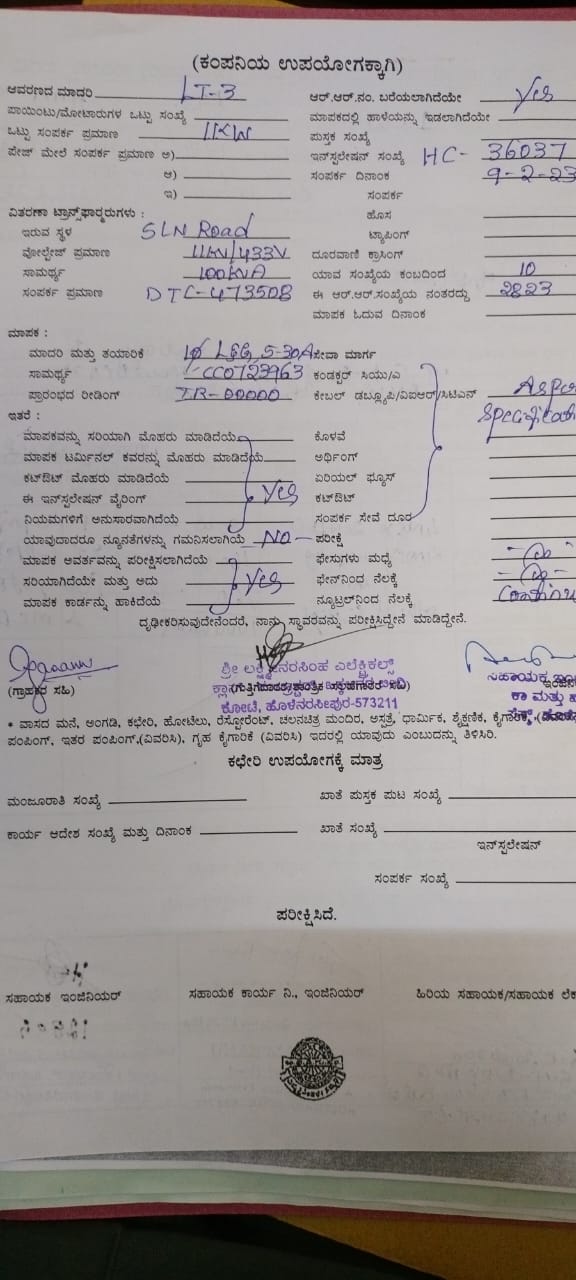 (ಕಂಪನಿಯ ಉಪಯೋಗಕ್ಕಾಗಿ)
ಆವರಣದ ಮಾದರಿ LT-3 ಆರ್.ಆರ್.ನಂ. ಬರೆಯಲಾಗಿದೆಯೇ Yes
ಪಾಯಿಂಟು/ಮೋಟಾರುಗಳ ಒಟ್ಟು ಸಂಖ್ಯೆ ಮಾಪಕದಲ್ಲಿ ಹಾಳೆಯನ್ನು ಇಡಲಾಗಿದೆಯೇ
ಒಟ್ಟು ಸಂಪರ್ಕ ಪ್ರಮಾಣ 11KW ಪುಸ್ತಕ ಸಂಖ್ಯೆ
ಪೇಜ್ ಮೇಲೆ ಸಂಪರ್ಕ ಪ್ರಮಾಣ ಅ) ಇನ್‌ಸ್ಟಲೇಷನ್ ಸಂಖ್ಯೆ HC- 36037
ಆ) ಸಂಪರ್ಕ ದಿನಾಂಕ 9-2-23
ಇ) ಸಂಪರ್ಕ
ವಿತರಣಾ ಟ್ರಾನ್ಸ್‌ಫಾರ್ಮರುಗಳು : ಹೊಸ
ಇರುವ ಸ್ಥಳ SLN Road ಟ್ಯಾಪಿಂಗ್
ವೋಲ್ಟೇಜ್ ಪ್ರಮಾಣ 11KV/433V ದೂರವಾಣಿ ಕ್ರಾಸಿಂಗ್
ಸಾಮರ್ಥ್ಯ 100KVA ಯಾವ ಸಂಖ್ಯೆಯ ಕಂಬದಿಂದ 10
ಸಂಪರ್ಕ ಪ್ರಮಾಣ DTC-473508 ಈ ಆರ್.ಆರ್.ಸಂಖ್ಯೆಯ ನಂತರದ್ದು 2823
ಮಾಪಕ ಓದುವ ದಿನಾಂಕ
ಮಾಪಕ :
ಮಾದರಿ ಮತ್ತು ತಯಾರಿಕೆ L&G, 5-30A ಸೇವಾ ಮಾರ್ಗ
ಸಾಮರ್ಥ್ಯ CC0723963 ಕಂಡಕ್ಟರ್ ಸಿಯು/ಎ
ಪ್ರಾರಂಭದ ರೀಡಿಂಗ್ IR-00000 ಕೇಬಲ್ ಡಬ್ಲ್ಯೂಪಿ/ವಿಐಆರ್/ಸಿಟಿಎಸ್ Asper
ಇತರೆ :
ಮಾಪಕವನ್ನು ಸರಿಯಾಗಿ ಮೊಹರು ಮಾಡಿದೆಯೆ ಕೊಳವೆ
ಮಾಪಕ ಟರ್ಮಿನಲ್ ಕವರನ್ನು ಮೊಹರು ಮಾಡಿದೆಯೆ ಅರ್ಥಿಂಗ್
ಕಟ್‌ಔಟ್ ಮೊಹರು ಮಾಡಿದೆಯೆ ಏರಿಯಲ್ ಫ್ಯೂಸ್
ಈ ಇನ್‌ಸ್ಟಲೇಷನ್ ವೈರಿಂಗ್ Yes ಕಟ್‌ಔಟ್
ನಿಯಮಗಳಿಗೆ ಅನುಸಾರವಾಗಿದೆಯೆ ಸಂಪರ್ಕ ಸೇವೆ ದೂರ
ಯಾವುದಾದರೂ ನ್ಯೂನತೆಗಳನ್ನು ಗಮನಿಸಲಾಗಿಯೆ NO ಪರೀಕ್ಷೆ
ಮಾಪಕ ಅವರ್ತವನ್ನು ಪರೀಕ್ಷಿಸಲಾಗಿದೆಯೆ ಫೇಸುಗಳು ಮಧ್ಯೆ
ಸರಿಯಾಗಿದೆಯೇ ಮತ್ತು ಅದು Yes ಫೇಸ್‌ನಿಂದ ನೆಲಕ್ಕೆ
ಮಾಪಕ ಕಾರ್ಡನ್ನು ಹಾಕಿದೆಯೆ ನ್ಯೂಟ್ರಲ್‌ನಿಂದ ನೆಲಕ್ಕೆ
ದೃಢೀಕರಿಸುವುದೇನೆಂದರೆ, ನಾನು ಸ್ಥಾವರವನ್ನು ಪರೀಕ್ಷಿಸಿದ್ದೇನೆ ಮಾಡಿದ್ದೇನೆ.
ಶ್ರೀ ಲಕ್ಷ್ಮೀನರಸಿಂಹ ಎಲೆಕ್ಟ್ರಿಕಲ್ಸ್ ಸಹಾಯಕ
(ಗ್ರಾಹಕರ ಸಹಿ) ಸಹಿ)
ಕೋಟೆ, ಹೊಳೆನರಸೀಪುರ-573211
* ವಾಸದ ಮನೆ, ಅಂಗಡಿ, ಕಛೇರಿ, ಹೋಟೆಲು, ರೆಸ್ಟೋರೆಂಟ್, ಚಲನಚಿತ್ರ ಮಂದಿರ, ಆಸ್ಪತ್ರೆ, ಧಾರ್ಮಿಕ, ಶೈಕ್ಷಣಿಕ,
ಪಂಪಿಂಗ್, ಇತರ ಪಂಪಿಂಗ್,(ವಿವರಿಸಿ), ಗೃಹ ಕೈಗಾರಿಕೆ (ವಿವರಿಸಿ) ಇದರಲ್ಲಿ ಯಾವುದು ಎಂಬುದನ್ನು ತಿಳಿಸಿರಿ.
ಕಛೇರಿ ಉಪಯೋಗಕ್ಕೆ ಮಾತ್ರ
ಮಂಜೂರಾತಿ ಸಂಖ್ಯೆ ಖಾತೆ ಪುಸ್ತಕ ಪುಟ ಸಂಖ್ಯೆ
ಕಾರ್ಯ ಆದೇಶ ಸಂಖ್ಯೆ ಮತ್ತು ದಿನಾಂಕ ಖಾತೆ ಸಂಖ್ಯೆ
ಇನ್‌ಸ್ಟಲೇಷನ್
ಸಂಪರ್ಕ ಸಂಖ್ಯೆ
ಪರೀಕ್ಷಿಸಿದೆ.
ಸಹಾಯಕ ಇಂಜಿನಿಯರ್ ಸಹಾಯಕ ಕಾರ್ಯ ನಿ., ಇಂಜಿನಿಯರ್ ಹಿರಿಯ ಸಹಾಯಕ/ಸಹಾಯಕ ಲೆಕ